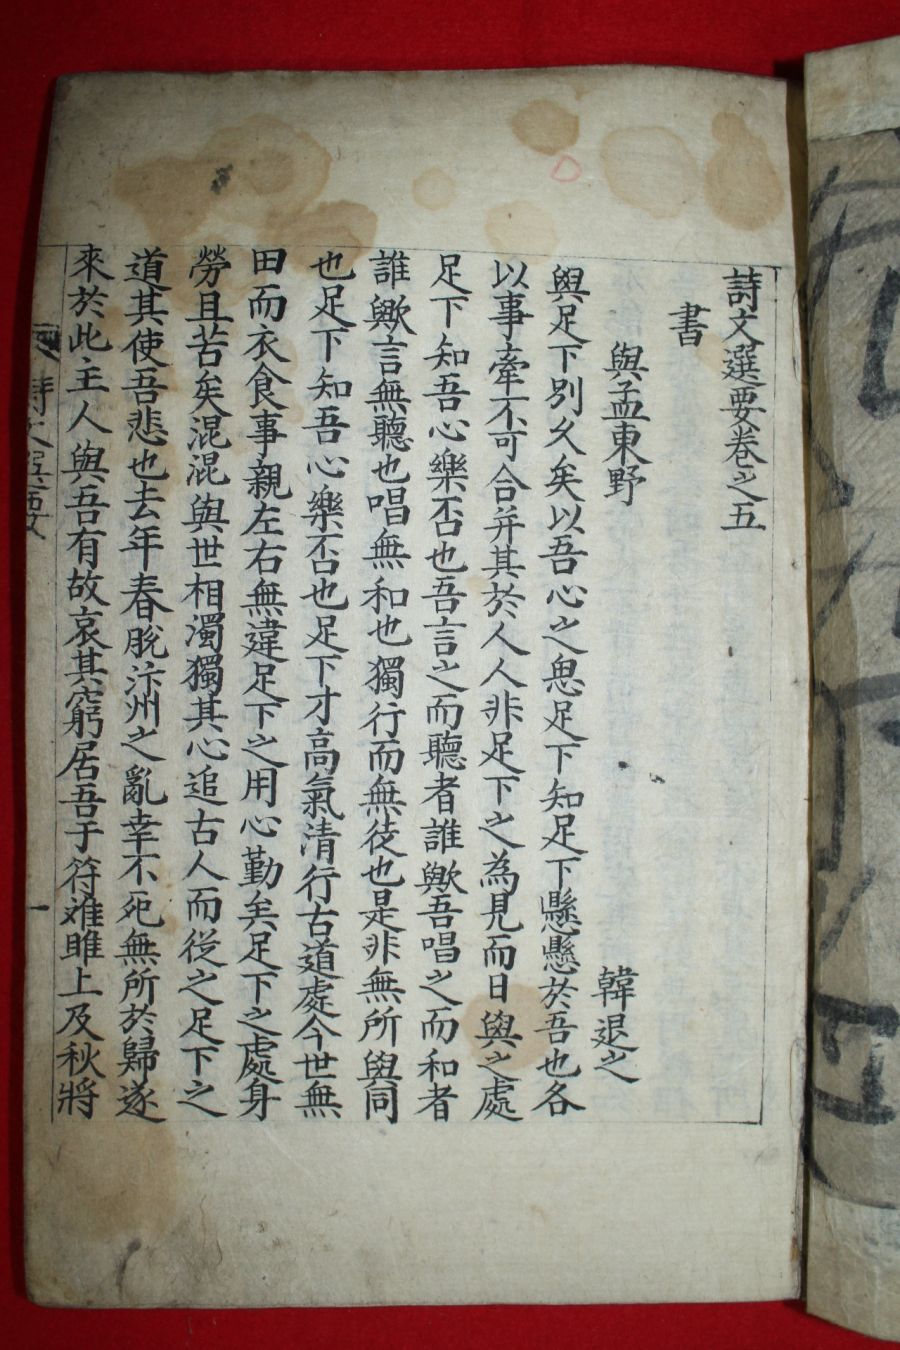 詩文選要卷之五
書
與孟東野 韓退之
與足下別久矣以吾心之思足下知足下懸懸於吾也各
以事牽不可合并其於人人非足下之為見而日與之處
足下知吾心樂否也吾言之而聽者誰歟吾唱之而和者
誰歟言無聽也唱無和也獨行而無徒也是非無所與同
也足下知吾心樂否也足下才高氣清行古道處今世無
田而衣食事親左右無違足下之用心勤矣足下之處身
勞且苦矣混混與世相濁獨其心追古人而從之足下之
道其使吾悲也去年春脫汴州之亂幸不死無所於歸遂
來於此主人與吾有故哀其窮居吾于符难睢上及秋將
詩文選要 一